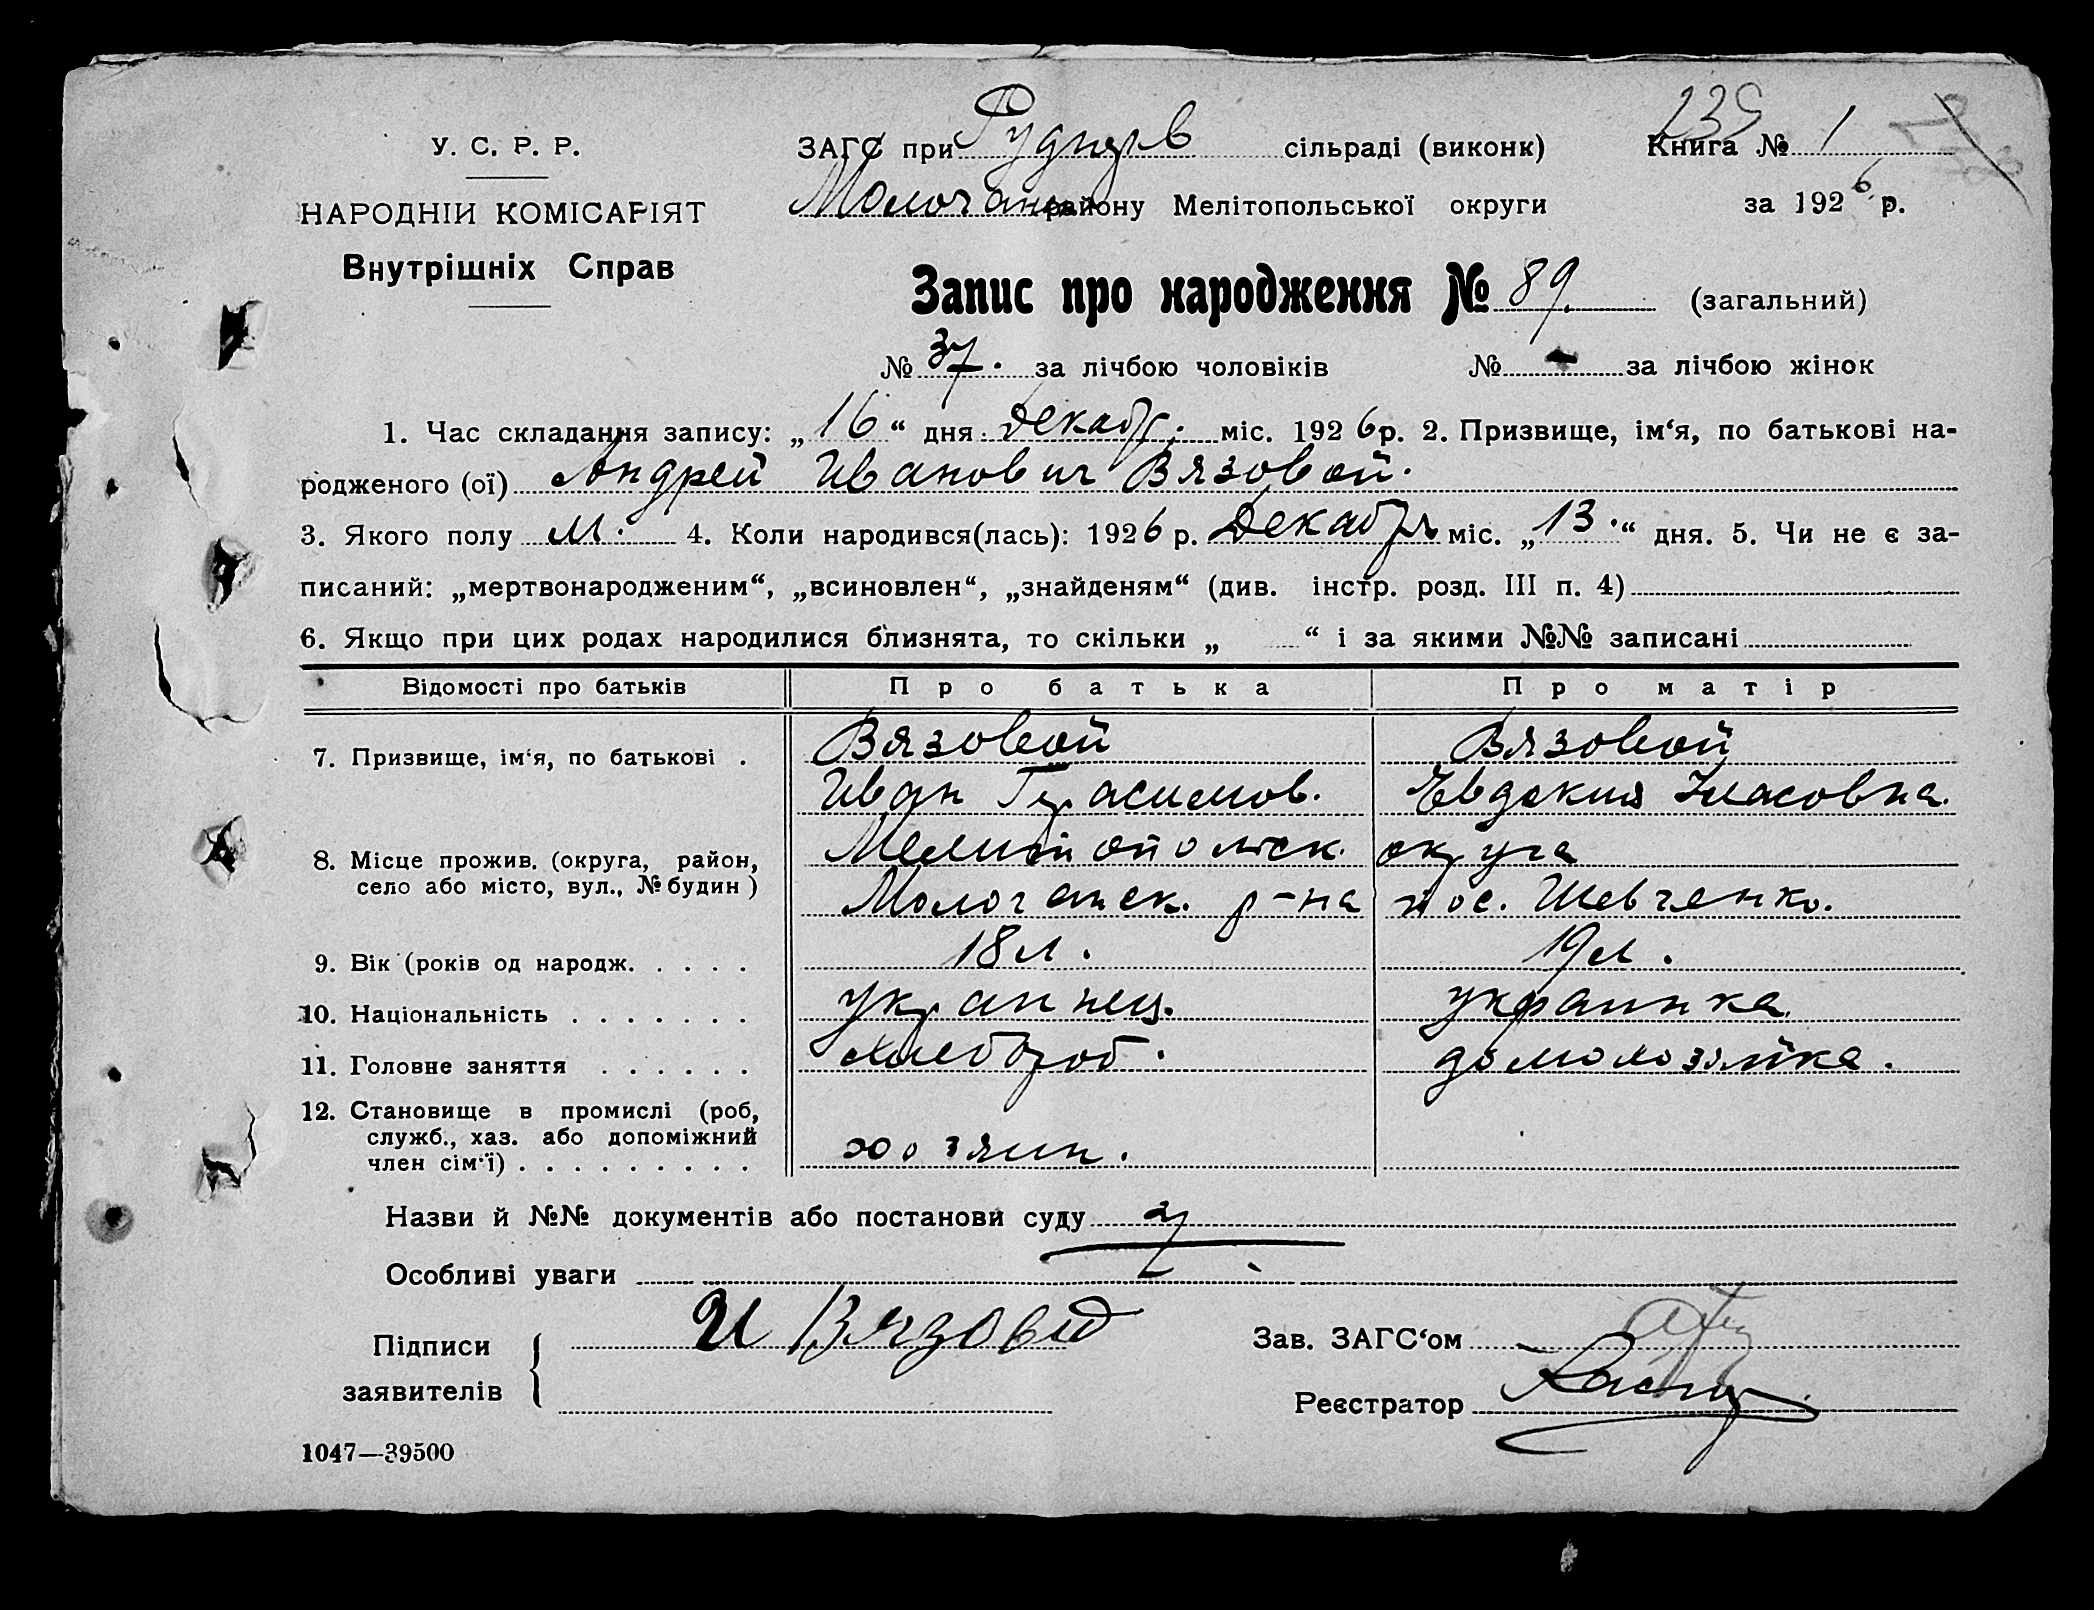 У. С. Р. Р.
НАРОДНІЙ КОМІСАРІЯТ
Внутрішніх Справ
ЗАГС при Рудняв сільраді (виконк)
239
Книга № 1
Молочан району Мелітопольської округи
за 1926 р.
Запис про народження № 89. (загальний)
№ 37. за лічбою чоловіків № - за лічбою жінок
1. Час складання запису: „16“ дня декабр. міс. 1926 р. 2. Призвище, ім‘я, по батькові на-
родженого (ої) Андрей Иванович Вязовой.
3. Якого полу м. 4. Коли народився(лась): 1926 р. Декабря міс. „13.“ дня. 5. Чи не є за-
писаний: „мертвонародженим“, „всиновлен“, „знайденям“ (див. інстр. розд. III п. 4)
6. Якщо при цих родах народилися близнята, то скільки „ “ і за якими №№ записані
Відомості про батьків Про батька Про матір
7. Призвище, ім‘я, по батькові . Вязовой Вязовой
Иван Герасимов. Евдокия Власовна.
8. Місце прожив. (округа, район, Мелитопольск. округа
село або місто, вул., № будин) Молочанск. р-на пос. Шевченко.
9. Вік (років од народж. . . . . 18 л. 19 л.
10. Національність . . . . . . . украинец. украинка.
11. Головне заняття . . . . . . хлебороб. домохозяйка.
12. Становище в промислі (роб,
служб., хаз. або допоміжний
член сім‘ї) . . . . . . . . . хозяин.
Назви й №№ документів або постанови суду
Особливі уваги
Підписи
заявителів
И Вязовой
Зав. ЗАГС‘ом
Реєстратор
1047—39500